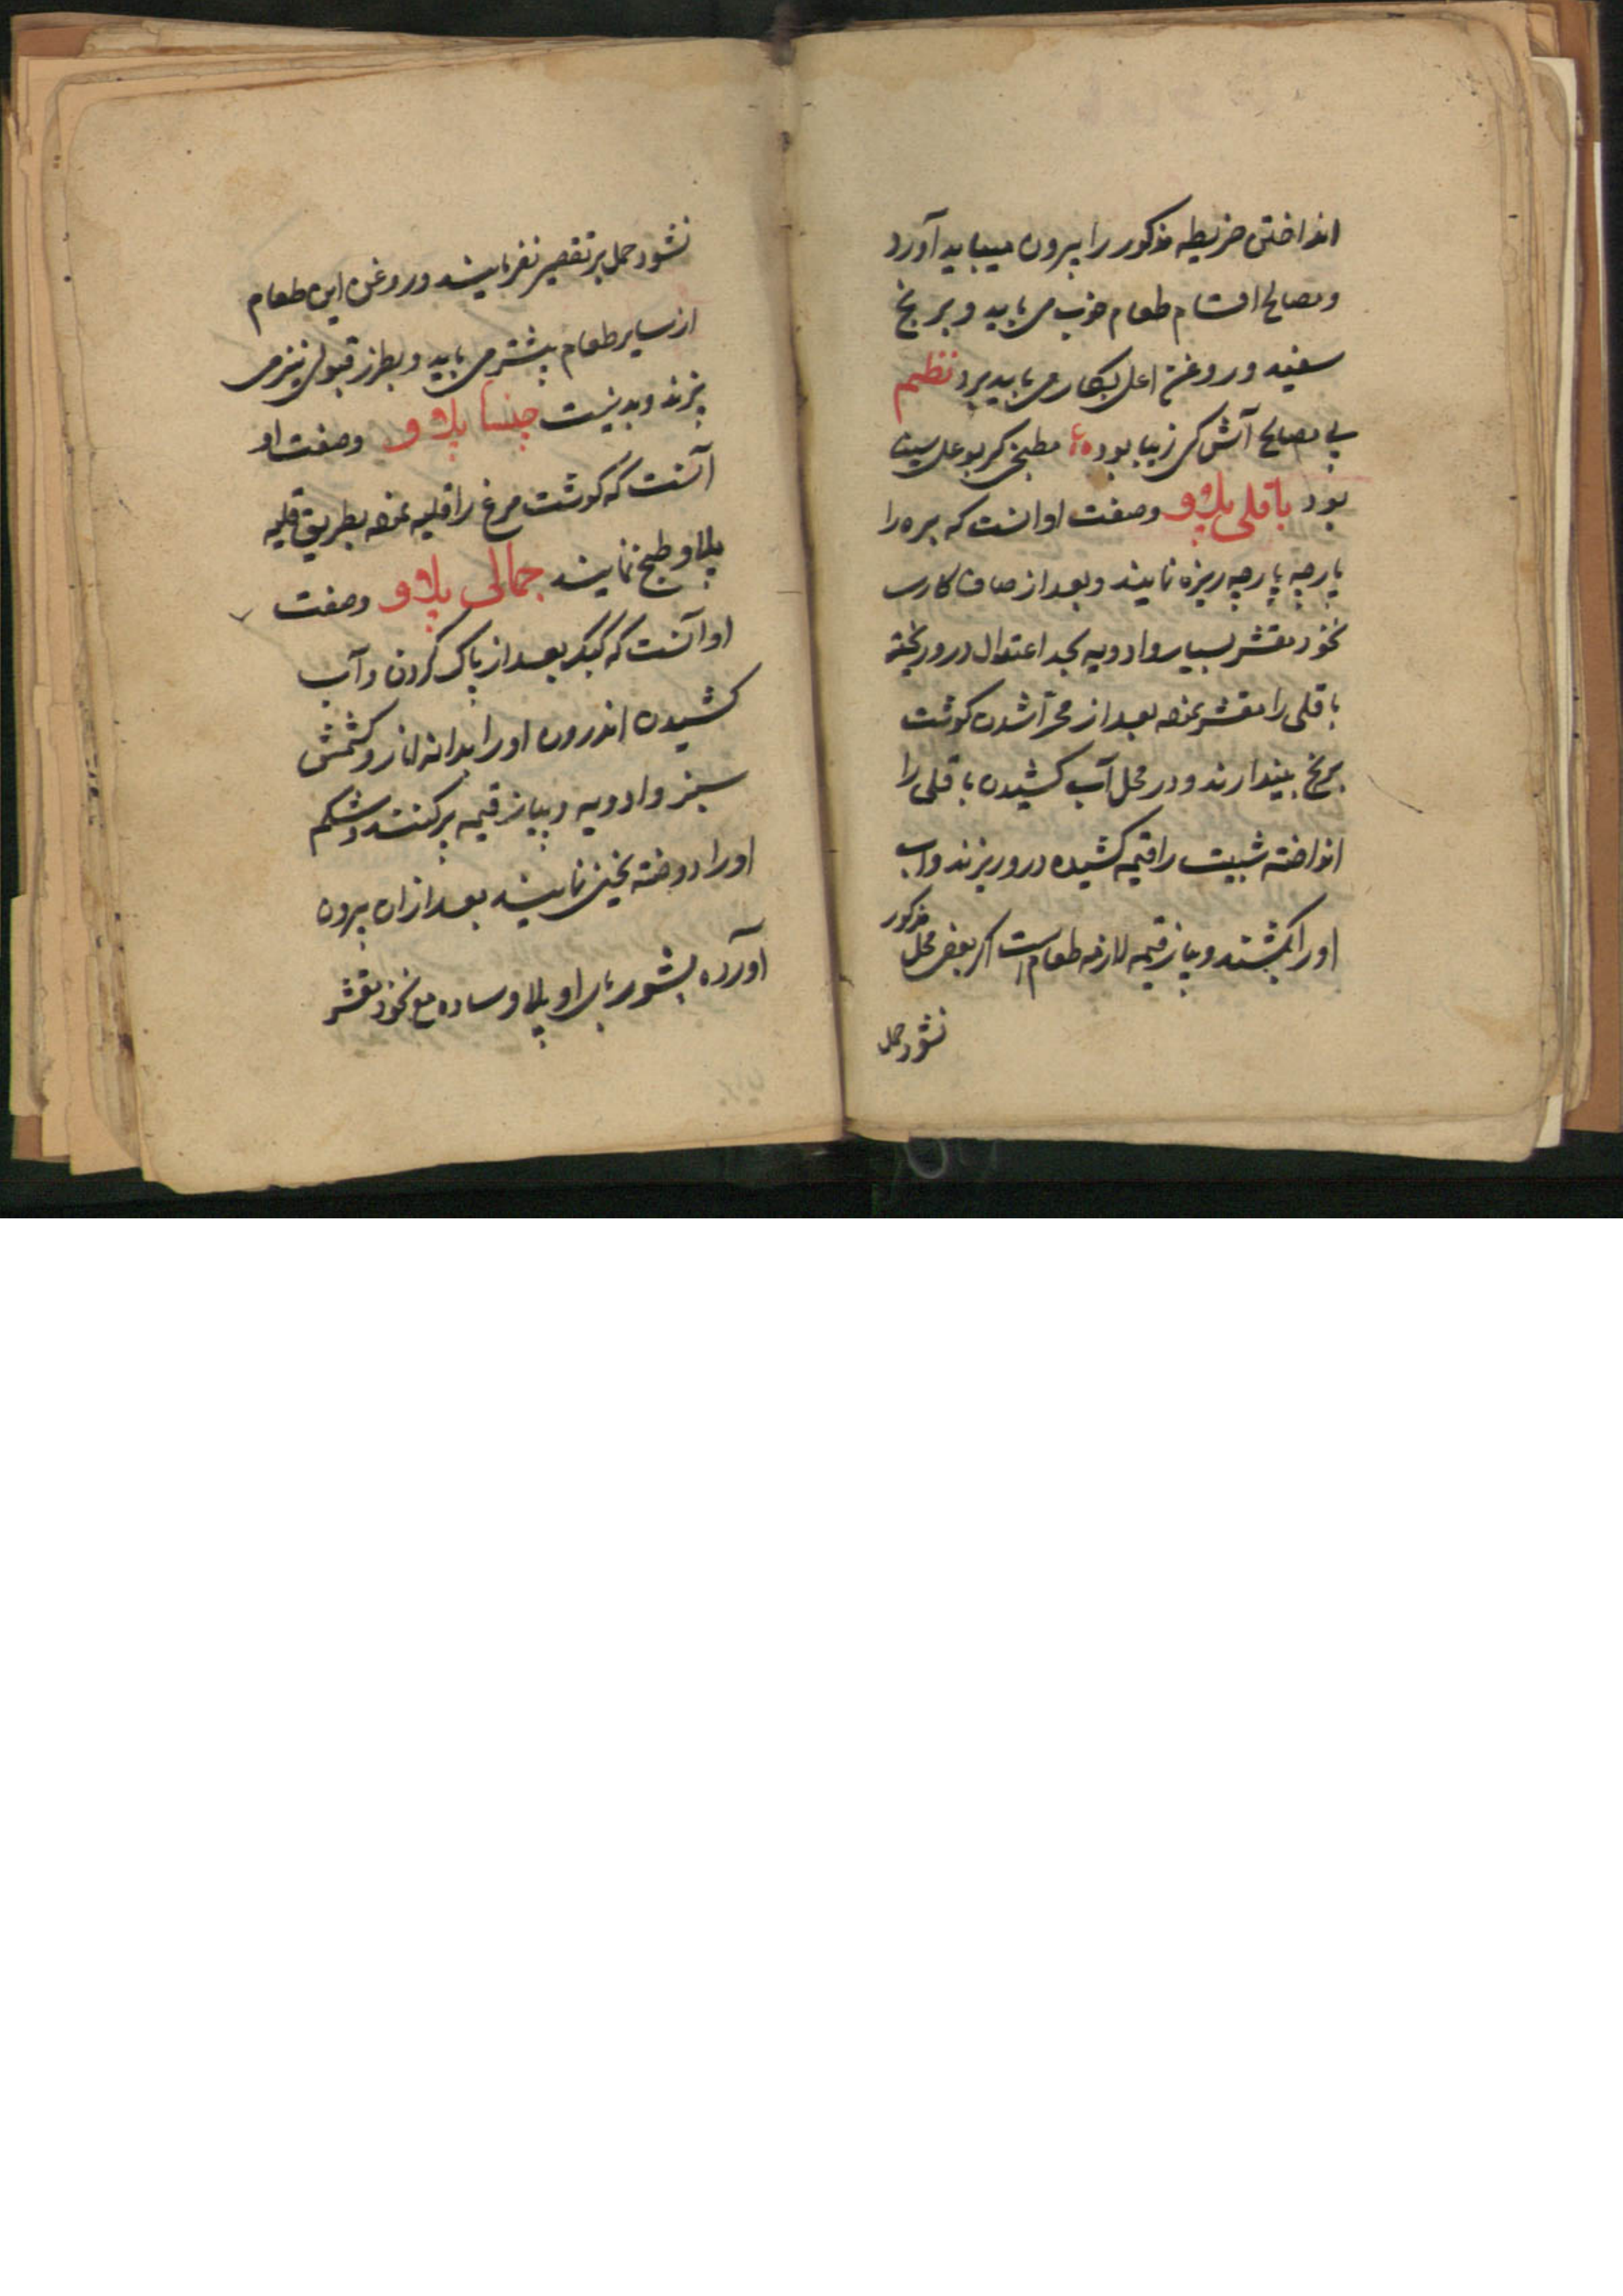 انداختن خریطه مذکور را بیرون میباید آورد
و مصالح اقسام طعام خوب می باید و برنج
سفید و روغن اعلی بکار می باید برد نظم
بی مصالح آش کی زیبا بود ع مطبخی کر بوعلی سینا
بود باقلی پلاو وصفت او انست که بره را
پارچه پارچه ریزه نمایند و بعد از صاف کارب
نخود مقشر بسیار و ادویه بحد اعتدال درو ریخته
باقلی را مقشر نموده بعد از محرا شدن کوشت
برنج بیندازند و در محل آب کشیدن باقلی را
انداخته شبیت را قیمه کشیده درو ریزند و اب
او را بکشند و پیاز قیمه لازمه طعام است اکر بعضی محل مذکور
نشود حمل
نشود حمل بر تقصیر نفرمایند و روغن این طعام
از سایر طعام بیشتر می باید و بطرز قبولی نیز می
پزند و بد نیست چنسا پلاو وصفت او
آنست که کوشت مرغ را قلیه نموده بطریق قلیه
پلاو طبخ نمایند جمالی پلاو وصفت
او آنست که کبک بعد از پاک کردن و آب
کشیدن اندرون او را بدانه انار و کشمش
سبز و ادویه و پیاز قیمه پر کنند و شکم
او را دوخته یخنی نمایند بعد ازان بیرون
آورده بشوربای او پلاو ساده مع نخود مقشر